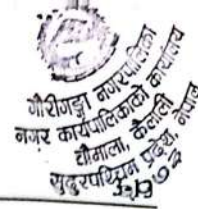 गौरीगङ्गा नगरपालिका
नगर कार्यपालिकाको कार्यालय
चौमाला, कैलाली
सुदूरपश्चिम प्रदेश, नेपाल